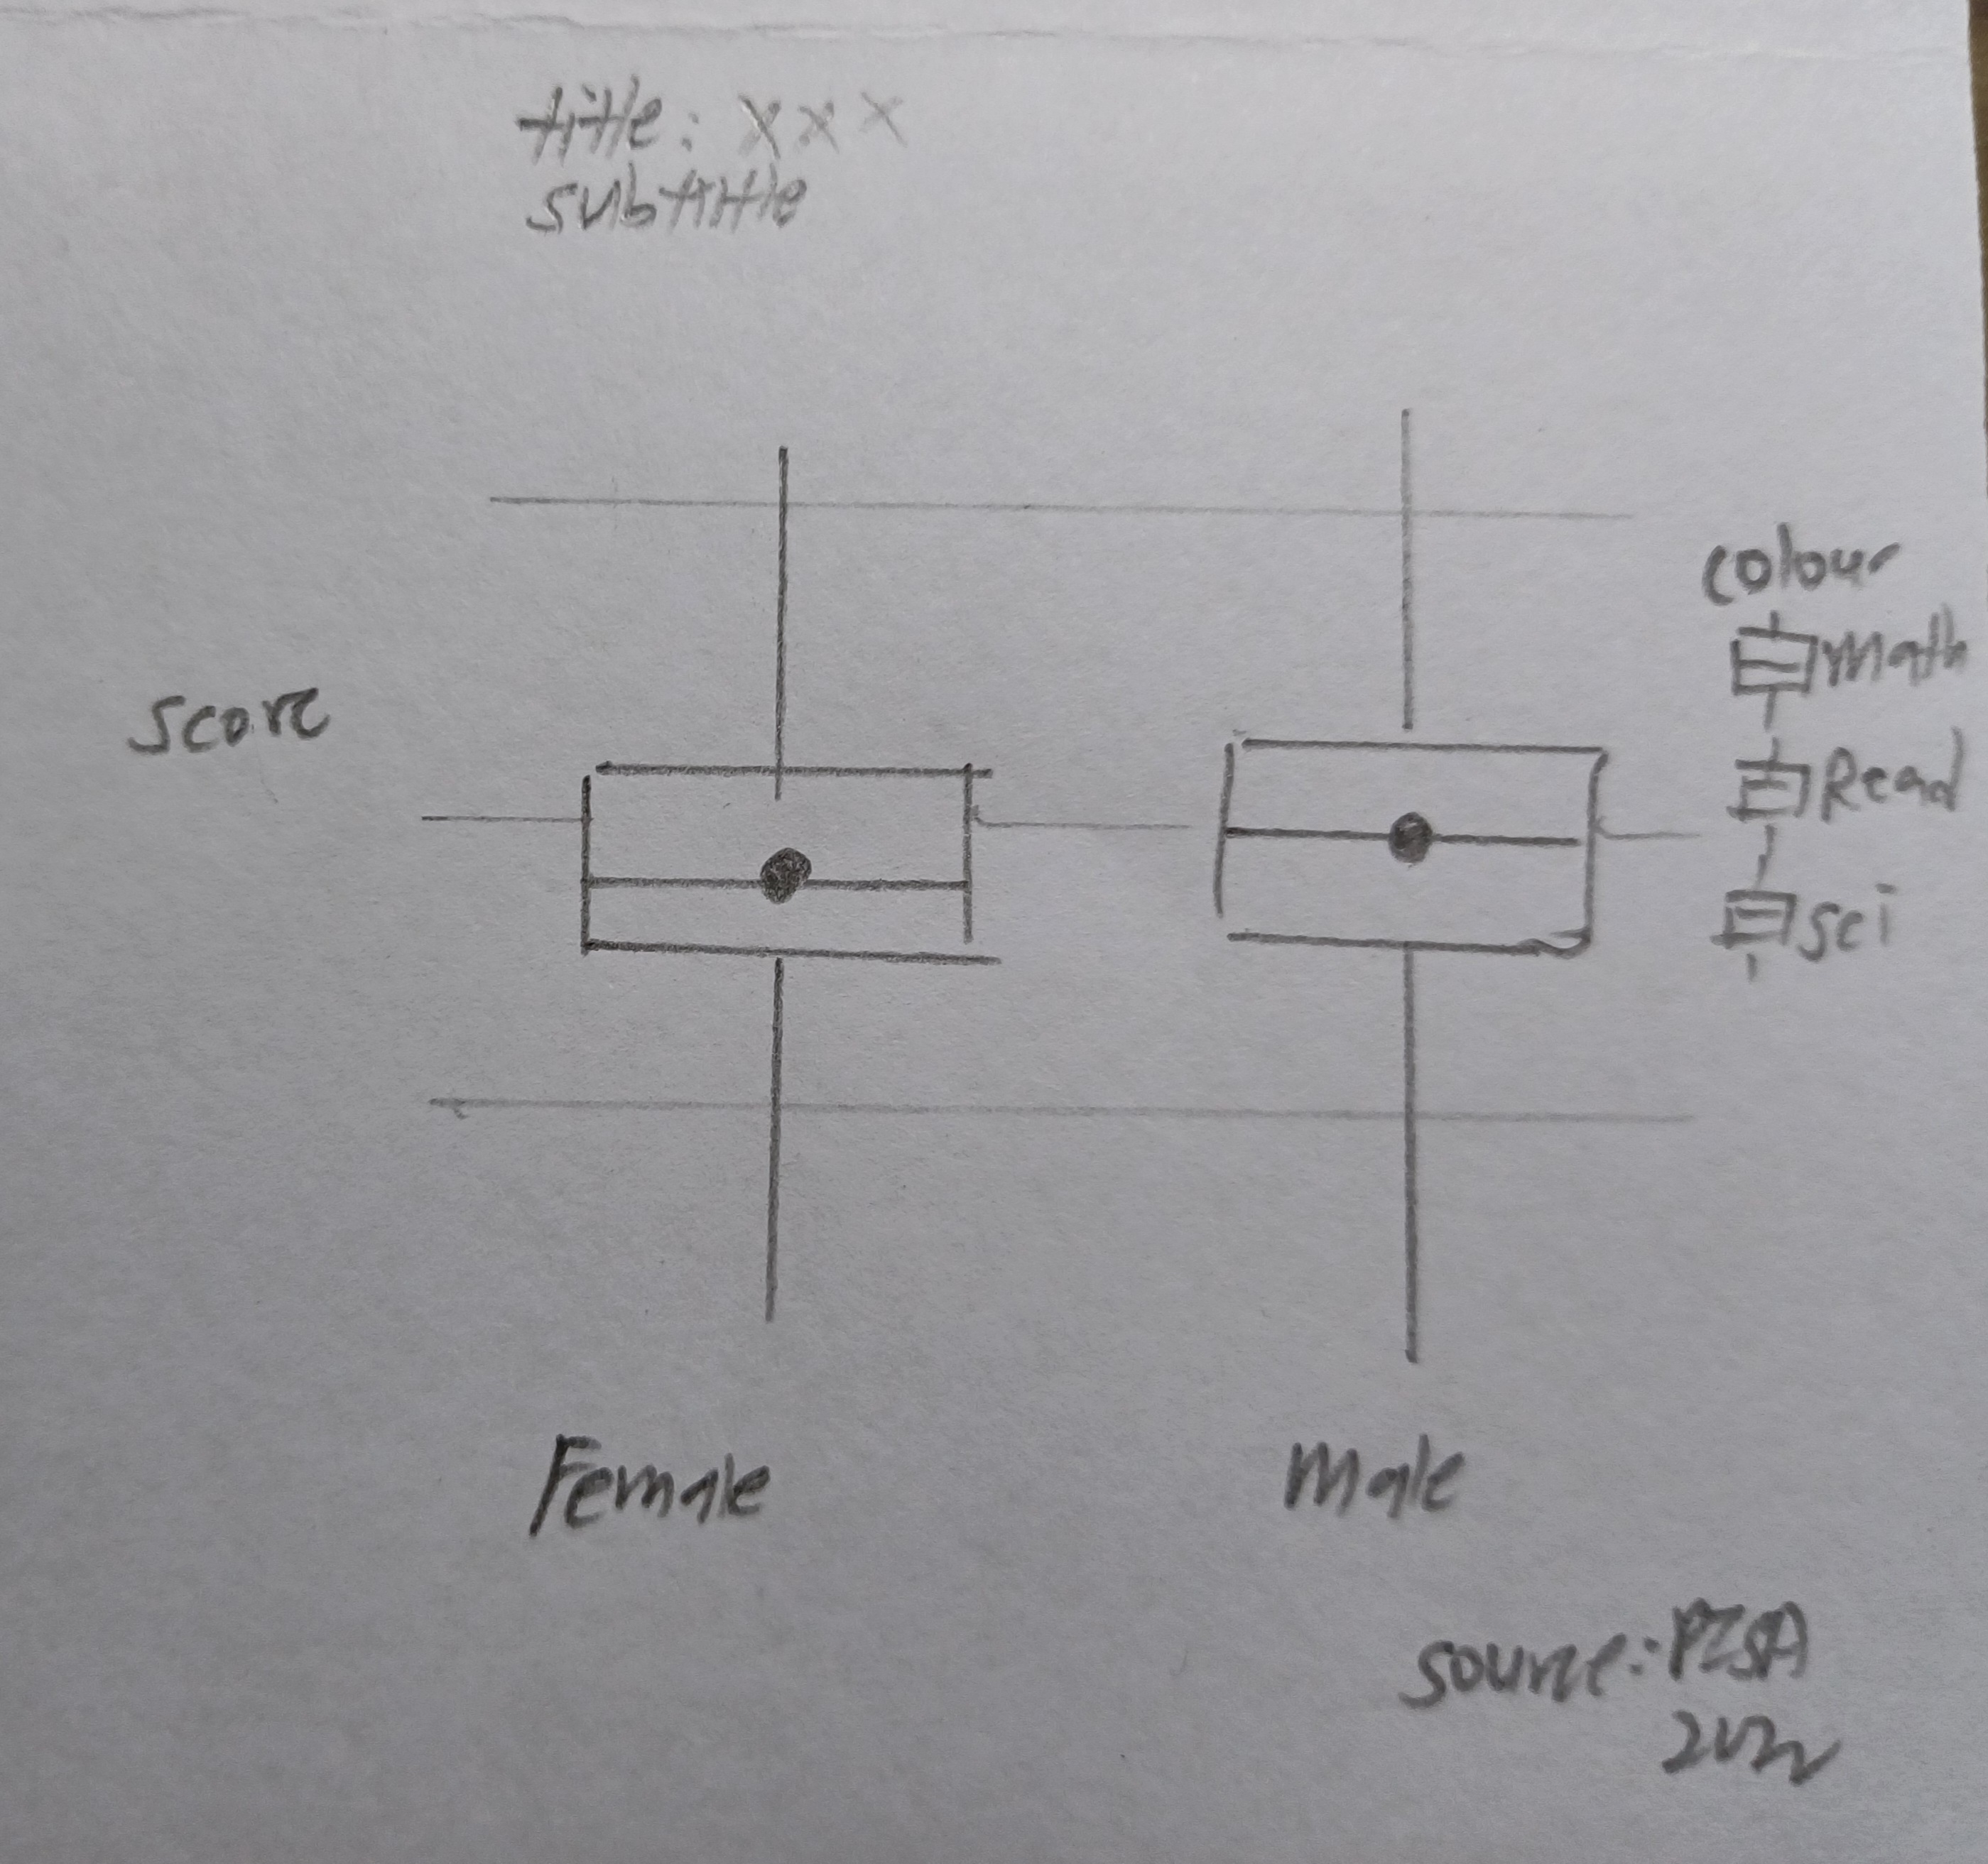 title: XXX
subtitle
score
colour
Math
Read
Sci
Female
Male
source: PISA
2022